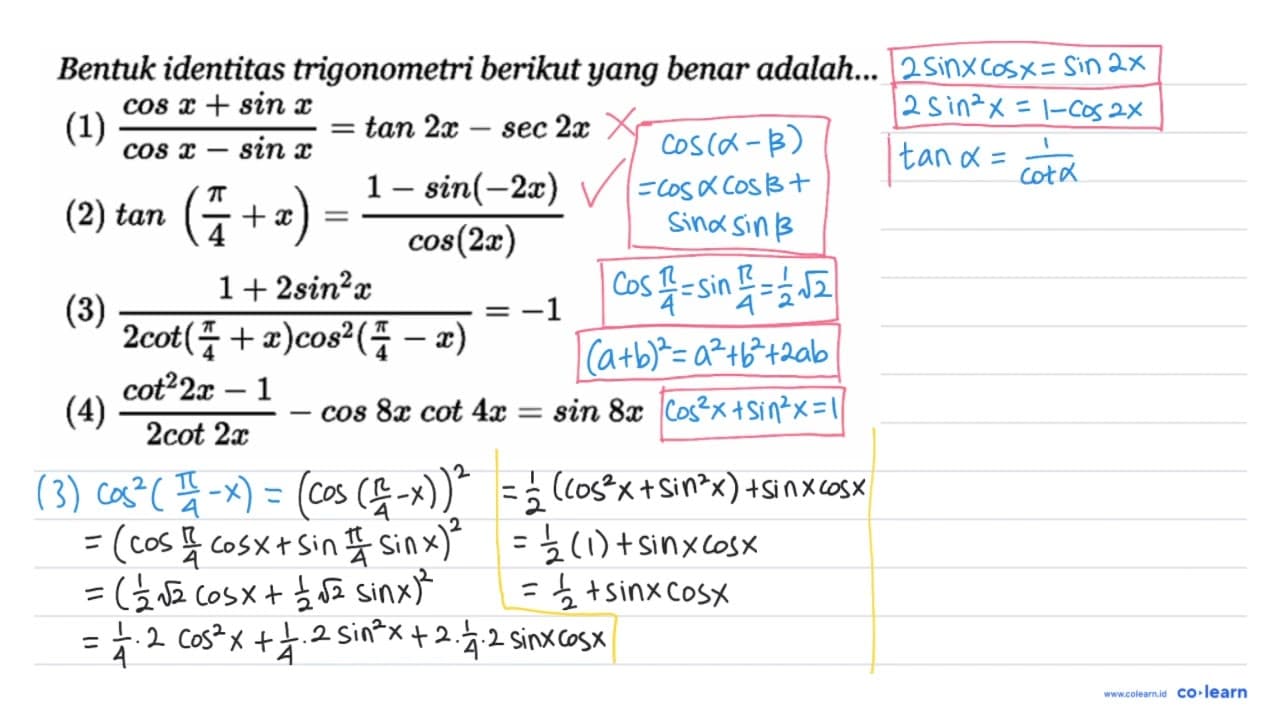 Bentuk identitas trigonometri berikut yang benar adalah...
(1) \frac{cos x + sin x}{cos x − sin x} = tan 2x − sec 2x ✗
(2) tan (\frac{π}{4} + x) = \frac{1 − sin(−2x)}{cos(2x)} ✓
(3) \frac{1 + 2sin²x}{2cot(\frac{π}{4} + x)cos²(\frac{π}{4} − x)} = −1
(4) \frac{cot²2x − 1}{2cot 2x} − cos 8x cot 4x = sin 8x
2 sin x cos x = sin 2x
2 sin² x = 1 − cos 2x
tan α = \frac{1}{cot α}
cos(α − β)
= cos α cos β +
sin α sin β
cos \frac{π}{4} = sin \frac{π}{4} = \frac{1}{2}√2
(a+b)² = a² + b² + 2ab
cos² x + sin² x = 1
(3) cos² (\frac{π}{4} − x) = (cos (\frac{π}{4} − x))²
= (cos \frac{π}{4} cos x + sin \frac{π}{4} sin x)²
= (\frac{1}{2}√2 cos x + \frac{1}{2}√2 sin x)²
= \frac{1}{4} . 2 cos² x + \frac{1}{4} . 2 sin² x + 2 . \frac{1}{4} . 2 sin x cos x
= \frac{1}{2} (cos² x + sin² x) + sin x cos x
= \frac{1}{2} (1) + sin x cos x
= \frac{1}{2} + sin x cos x
www.colearn.id co·learn